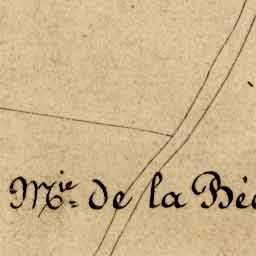 Mie de la Bé